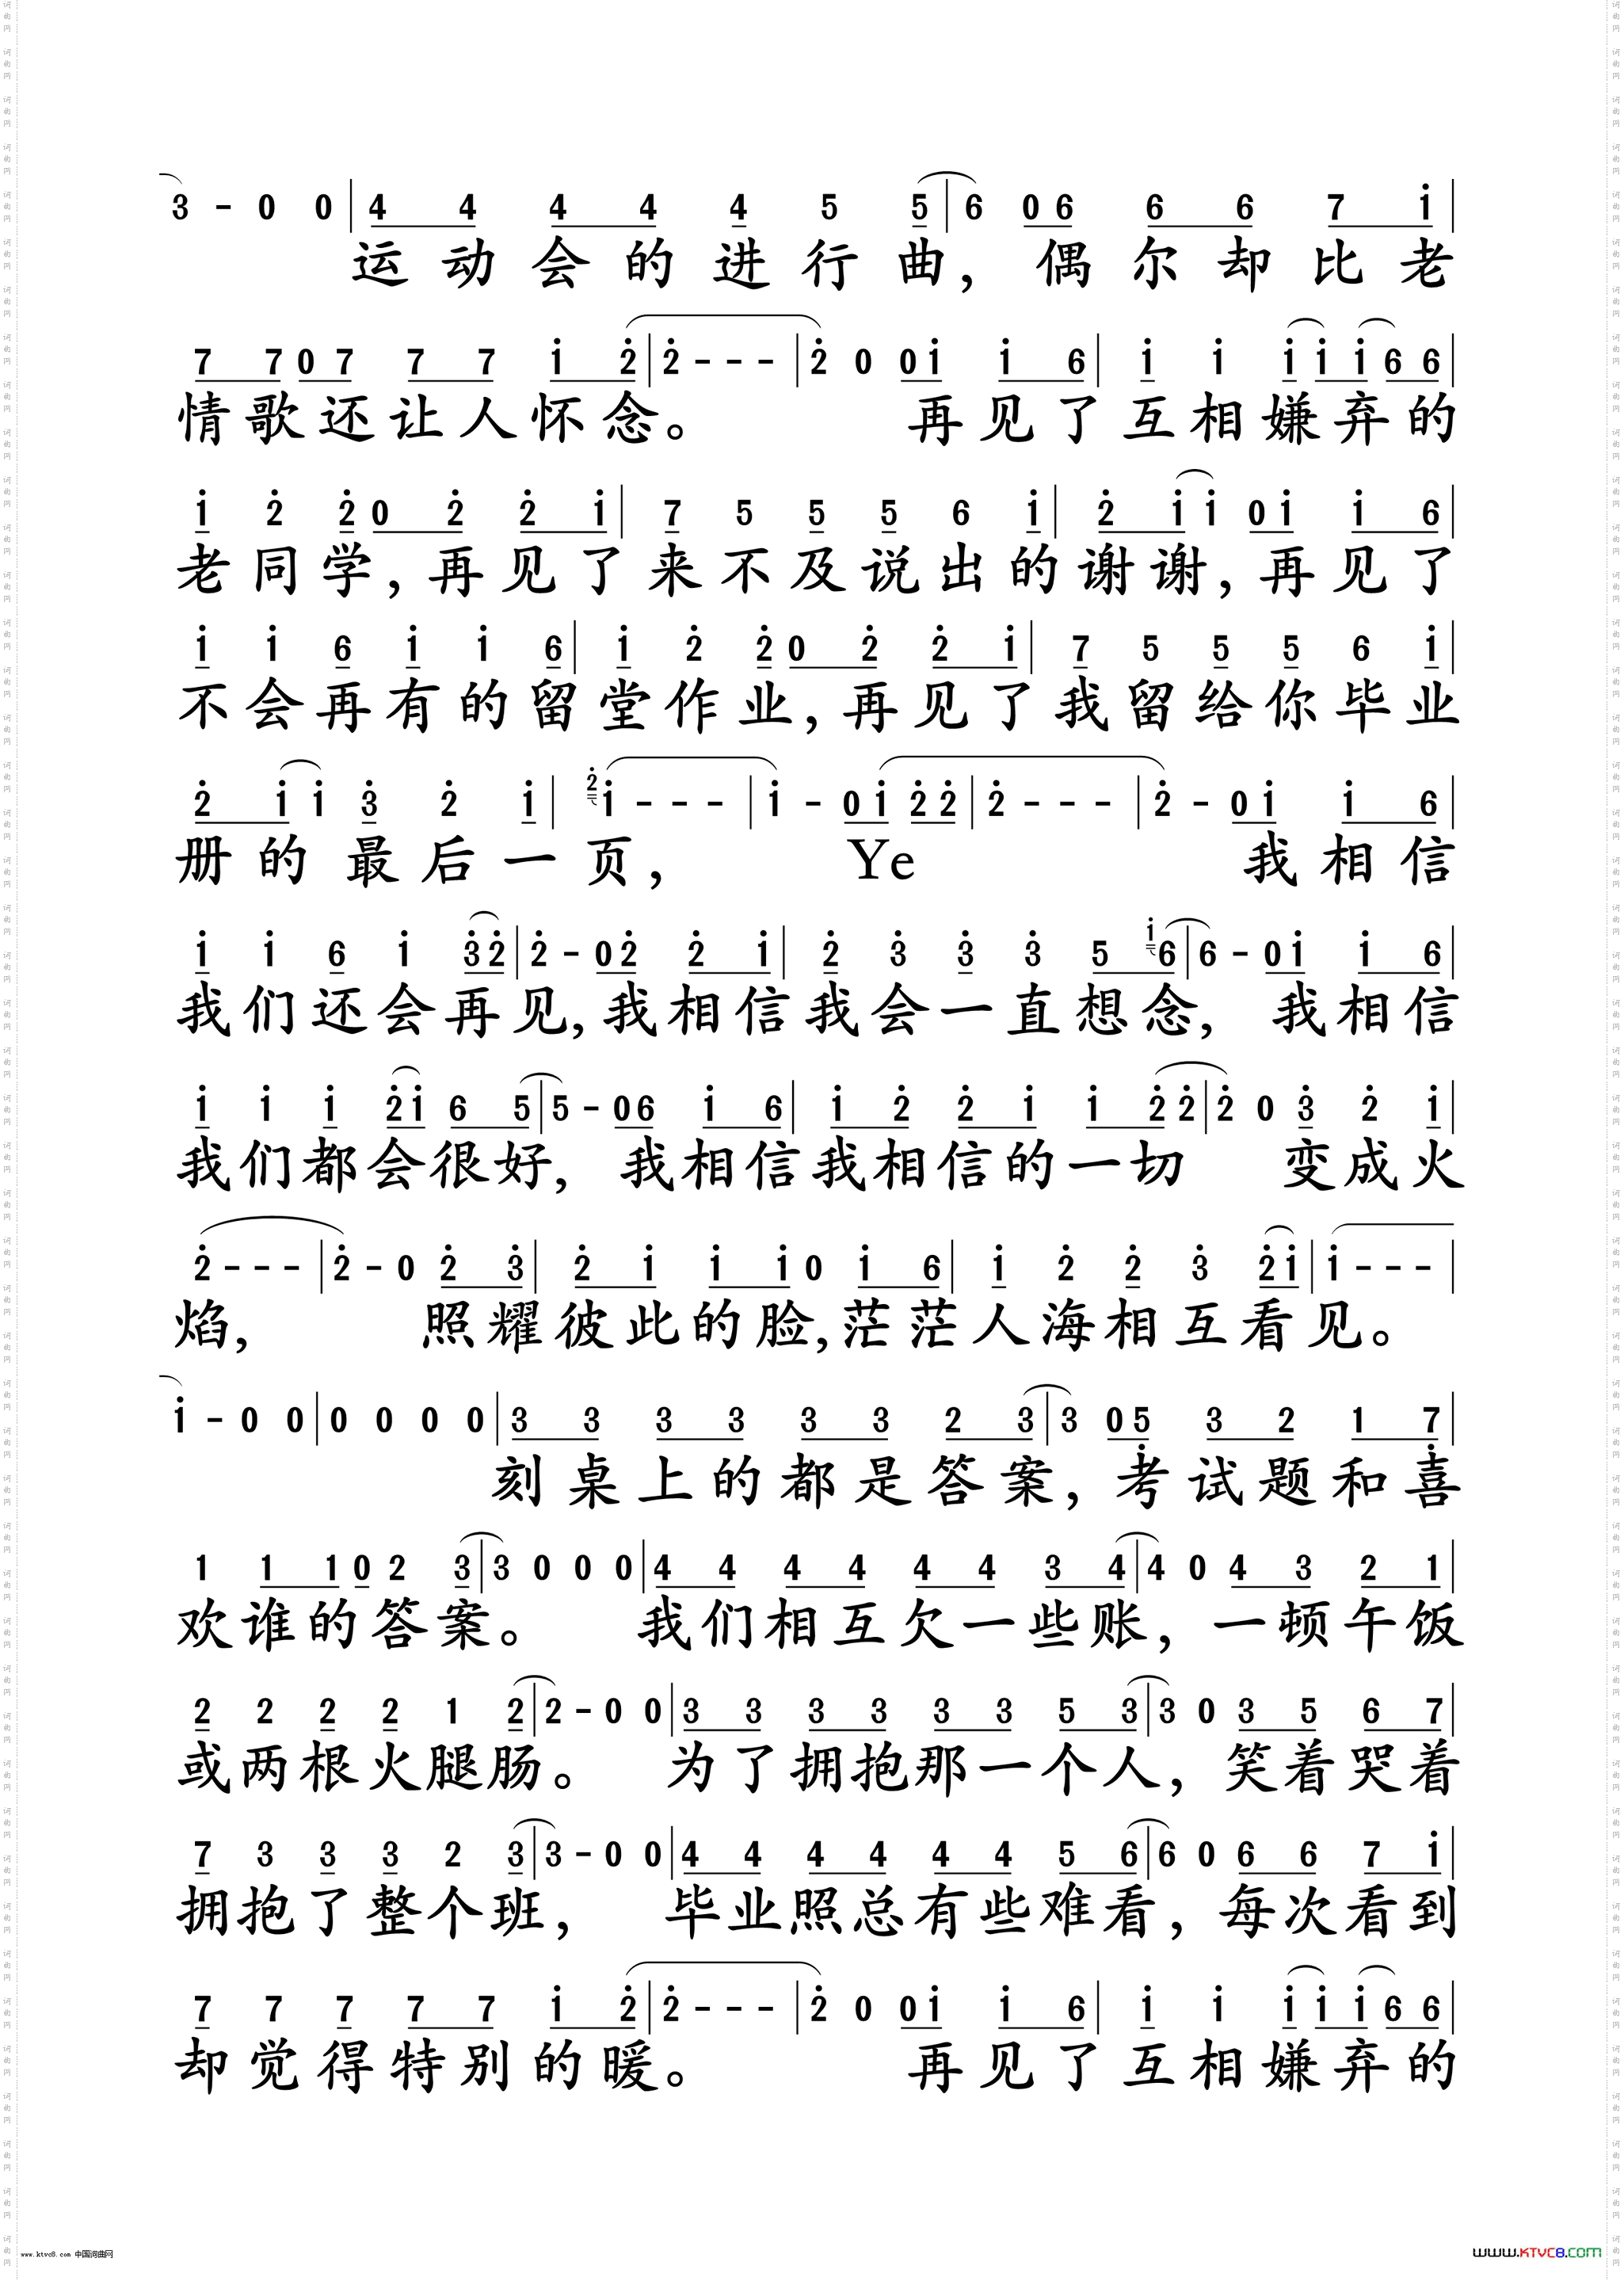 3 - 0 0 | 4 4 4 4 4 5 5 | 6 0 6 6 6 7 i |
运动会的进行曲，偶尔却比老
7 7 0 7 7 7 i 2 | 2 - - - | 2 0 0 i i 6 | i i i i i 6 6 |
情歌还让人怀念。 再见了互相嫌弃的
i 2 2 0 2 2 i | 7 5 5 5 6 i | 2 i i 0 i i 6 |
老同学，再见了来不及说出的谢谢，再见了
i i 6 i i 6 | i 2 2 0 2 2 i | 7 5 5 5 6 i |
不会再有的留堂作业，再见了我留给你毕业
2 i i 3 2 i | 2 i - - - | i - 0 i 2 2 | 2 - - - | 2 - 0 i i 6 |
册的最后一页， Ye 我相信
i i 6 i 3 2 | 2 - 0 2 2 i | 2 3 3 3 5 i 6 | 6 - 0 i i 6 |
我们还会再见，我相信我会一直想念， 我相信
i i i 2 i 6 5 | 5 - 0 6 i 6 | i 2 2 i i 2 2 | 2 0 3 2 i |
我们都会很好， 我相信我相信的一切 变成火
2 - - - | 2 - 0 2 3 | 2 i i i 0 i 6 | i 2 2 3 2 i | i - - - |
焰， 照耀彼此的脸，茫茫人海相互看见。
i - 0 0 | 0 0 0 0 | 3 3 3 3 3 3 2 3 | 3 0 5 3 2 1 7 |
刻桌上的都是答案，考试题和喜
1 1 1 0 2 3 | 3 0 0 0 | 4 4 4 4 4 4 3 4 | 4 0 4 3 2 1 |
欢谁的答案。 我们相互欠一些账，一顿午饭
2 2 2 2 1 2 | 2 - 0 0 | 3 3 3 3 3 3 5 3 | 3 0 3 5 6 7 |
或两根火腿肠。 为了拥抱那一个人，笑着哭着
7 3 3 3 2 3 | 3 - 0 0 | 4 4 4 4 4 4 5 6 | 6 0 6 6 7 i |
拥抱了整个班， 毕业照总有些难看，每次看到
7 7 7 7 7 i 2 | 2 - - - | 2 0 0 i i 6 | i i i i i 6 6 |
却觉得特别的暖。 再见了互相嫌弃的
www.ktvc8.com 中国词曲网
WWW.KTVC8.COM